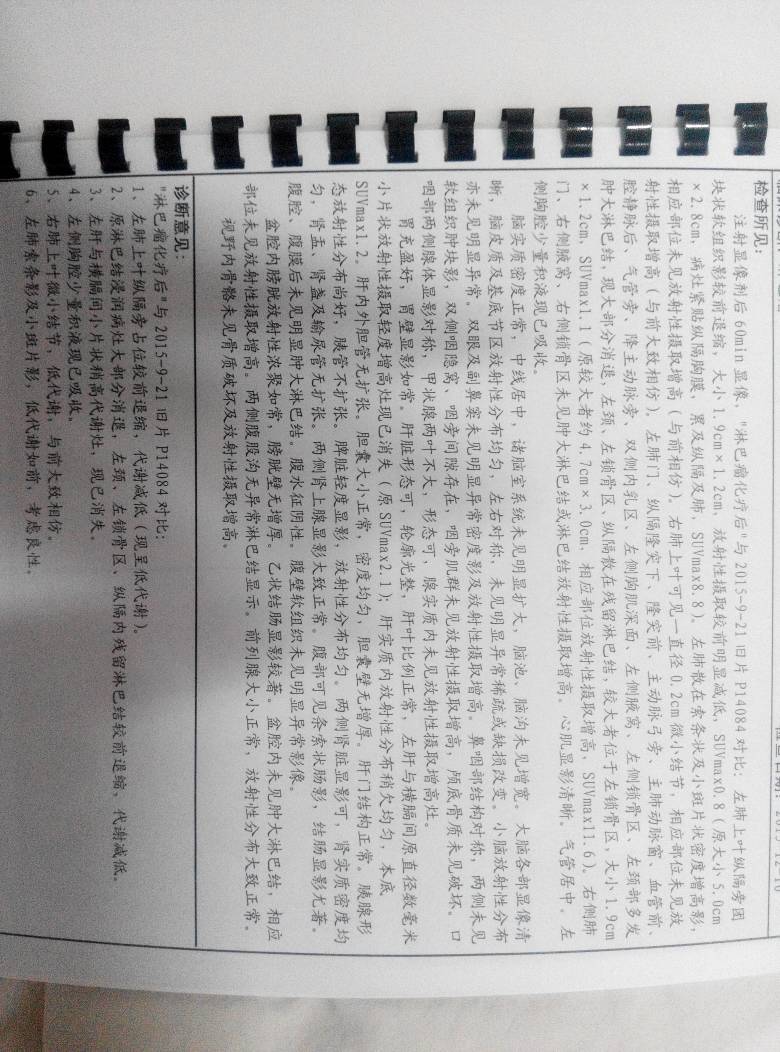 检查所见：
注射显像剂后 60min 显像，"淋巴瘤化疗后"与 2015-9-21 旧片 P14084 对比：左肺上叶纵隔旁团
块状软组织影较前退缩，大小 1.9cm×1.2cm，放射性摄取较前明显减低，SUVmax0.8（原大小 5.0cm
×2.8cm，病灶紧贴纵隔胸膜，累及纵隔及肺，SUVmax8.8）。左肺散在索条状及小斑片状密度增高影，
相应部位未见放射性摄取增高（与前相仿）。右肺上叶可见一直径 0.2cm 微小结节，相应部位未见放
射性摄取增高（与前大致相仿）。左肺门、纵隔隆突下、隆突前、主动脉弓旁、主肺动脉窗、血管前、
腔静脉后、气管旁、降主动脉旁、双侧内乳区、左侧胸肌深面、左侧腋窝、左侧锁骨区、左颈部多发
肿大淋巴结，现大部分消退，左颈、左锁骨区、纵隔散在残留淋巴结，较大者位于左锁骨区，大小 1.9cm
×1.2cm，SUVmax1.1（原较大者约 4.7cm×3.0cm，相应部位放射性摄取增高，SUVmax11.6）。右侧肺
门、右侧腋窝、右侧锁骨区未见肿大淋巴结或淋巴结放射性摄取增高。心肌显影清晰。气管居中。左
侧胸腔少量积液现已吸收。
脑实质密度正常，中线居中，诸脑室系统未见明显扩大，脑池、脑沟未见增宽。大脑各部显像清
晰，脑皮质及基底节区放射性分布均匀，左右对称，未见明显异常稀疏或缺损改变。小脑放射性分布
亦未见明显异常。双眼及副鼻窦未见明显异常密度影及放射性摄取增高。鼻咽部结构对称，两侧未见
软组织肿块影，双侧咽隐窝、咽旁间隙存在，咽旁肌群未见放射性摄取增高，颅底骨质未见破坏。口
咽部两侧腺体显影对称，甲状腺两叶不大，形态可，腺实质内未见放射性摄取增高灶。
胃充盈好，胃壁显影如常。肝脏形态可，轮廓光整，肝叶比例正常，左肝与横膈间原直径数毫米
小片状放射性摄取轻度增高灶现已消失（原 SUVmax2.1）；肝实质内放射性分布稍欠均匀，本底
SUVmax1.2，肝内外胆管无扩张。胆囊大小正常，密度均匀，胆囊壁无增厚。肝门结构正常。胰腺形
态放射性分布尚好，胰管不扩张。脾脏轻度显影，放射性分布均匀。两侧肾脏显影可，肾实质密度均
匀，肾盂、肾盏及输尿管无扩张。两侧肾上腺显影大致正常。腹部可见条索状肠影，结肠显影尤著。
腹腔、腹膜后未见明显肿大淋巴结。腹水征阴性。腹壁软组织未见明显异常影像。
盆腔内膀胱放射性浓聚如常，膀胱壁无增厚。乙状结肠显影较著。盆腔内未见肿大淋巴结，相应
部位未见放射性摄取增高。两侧腹股沟无异常淋巴结显示。前列腺大小正常，放射性分布大致正常。
视野内骨骼未见骨质破坏及放射性摄取增高。
诊断意见：
"淋巴瘤化疗后"与 2015-9-21 旧片 P14084 对比：
1、左肺上叶纵隔旁占位较前退缩，代谢减低（现呈低代谢）。
2、原淋巴结浸润病灶大部分消退，左颈、左锁骨区、纵隔内残留淋巴结较前退缩，代谢减低。
3、左肝与横膈间小片状稍高代谢灶，现已消失。
4、左侧胸腔少量积液现已吸收。
5、右肺上叶微小结节，低代谢，与前大致相仿。
6、左肺索条影及小斑片影，低代谢如前，考虑良性。